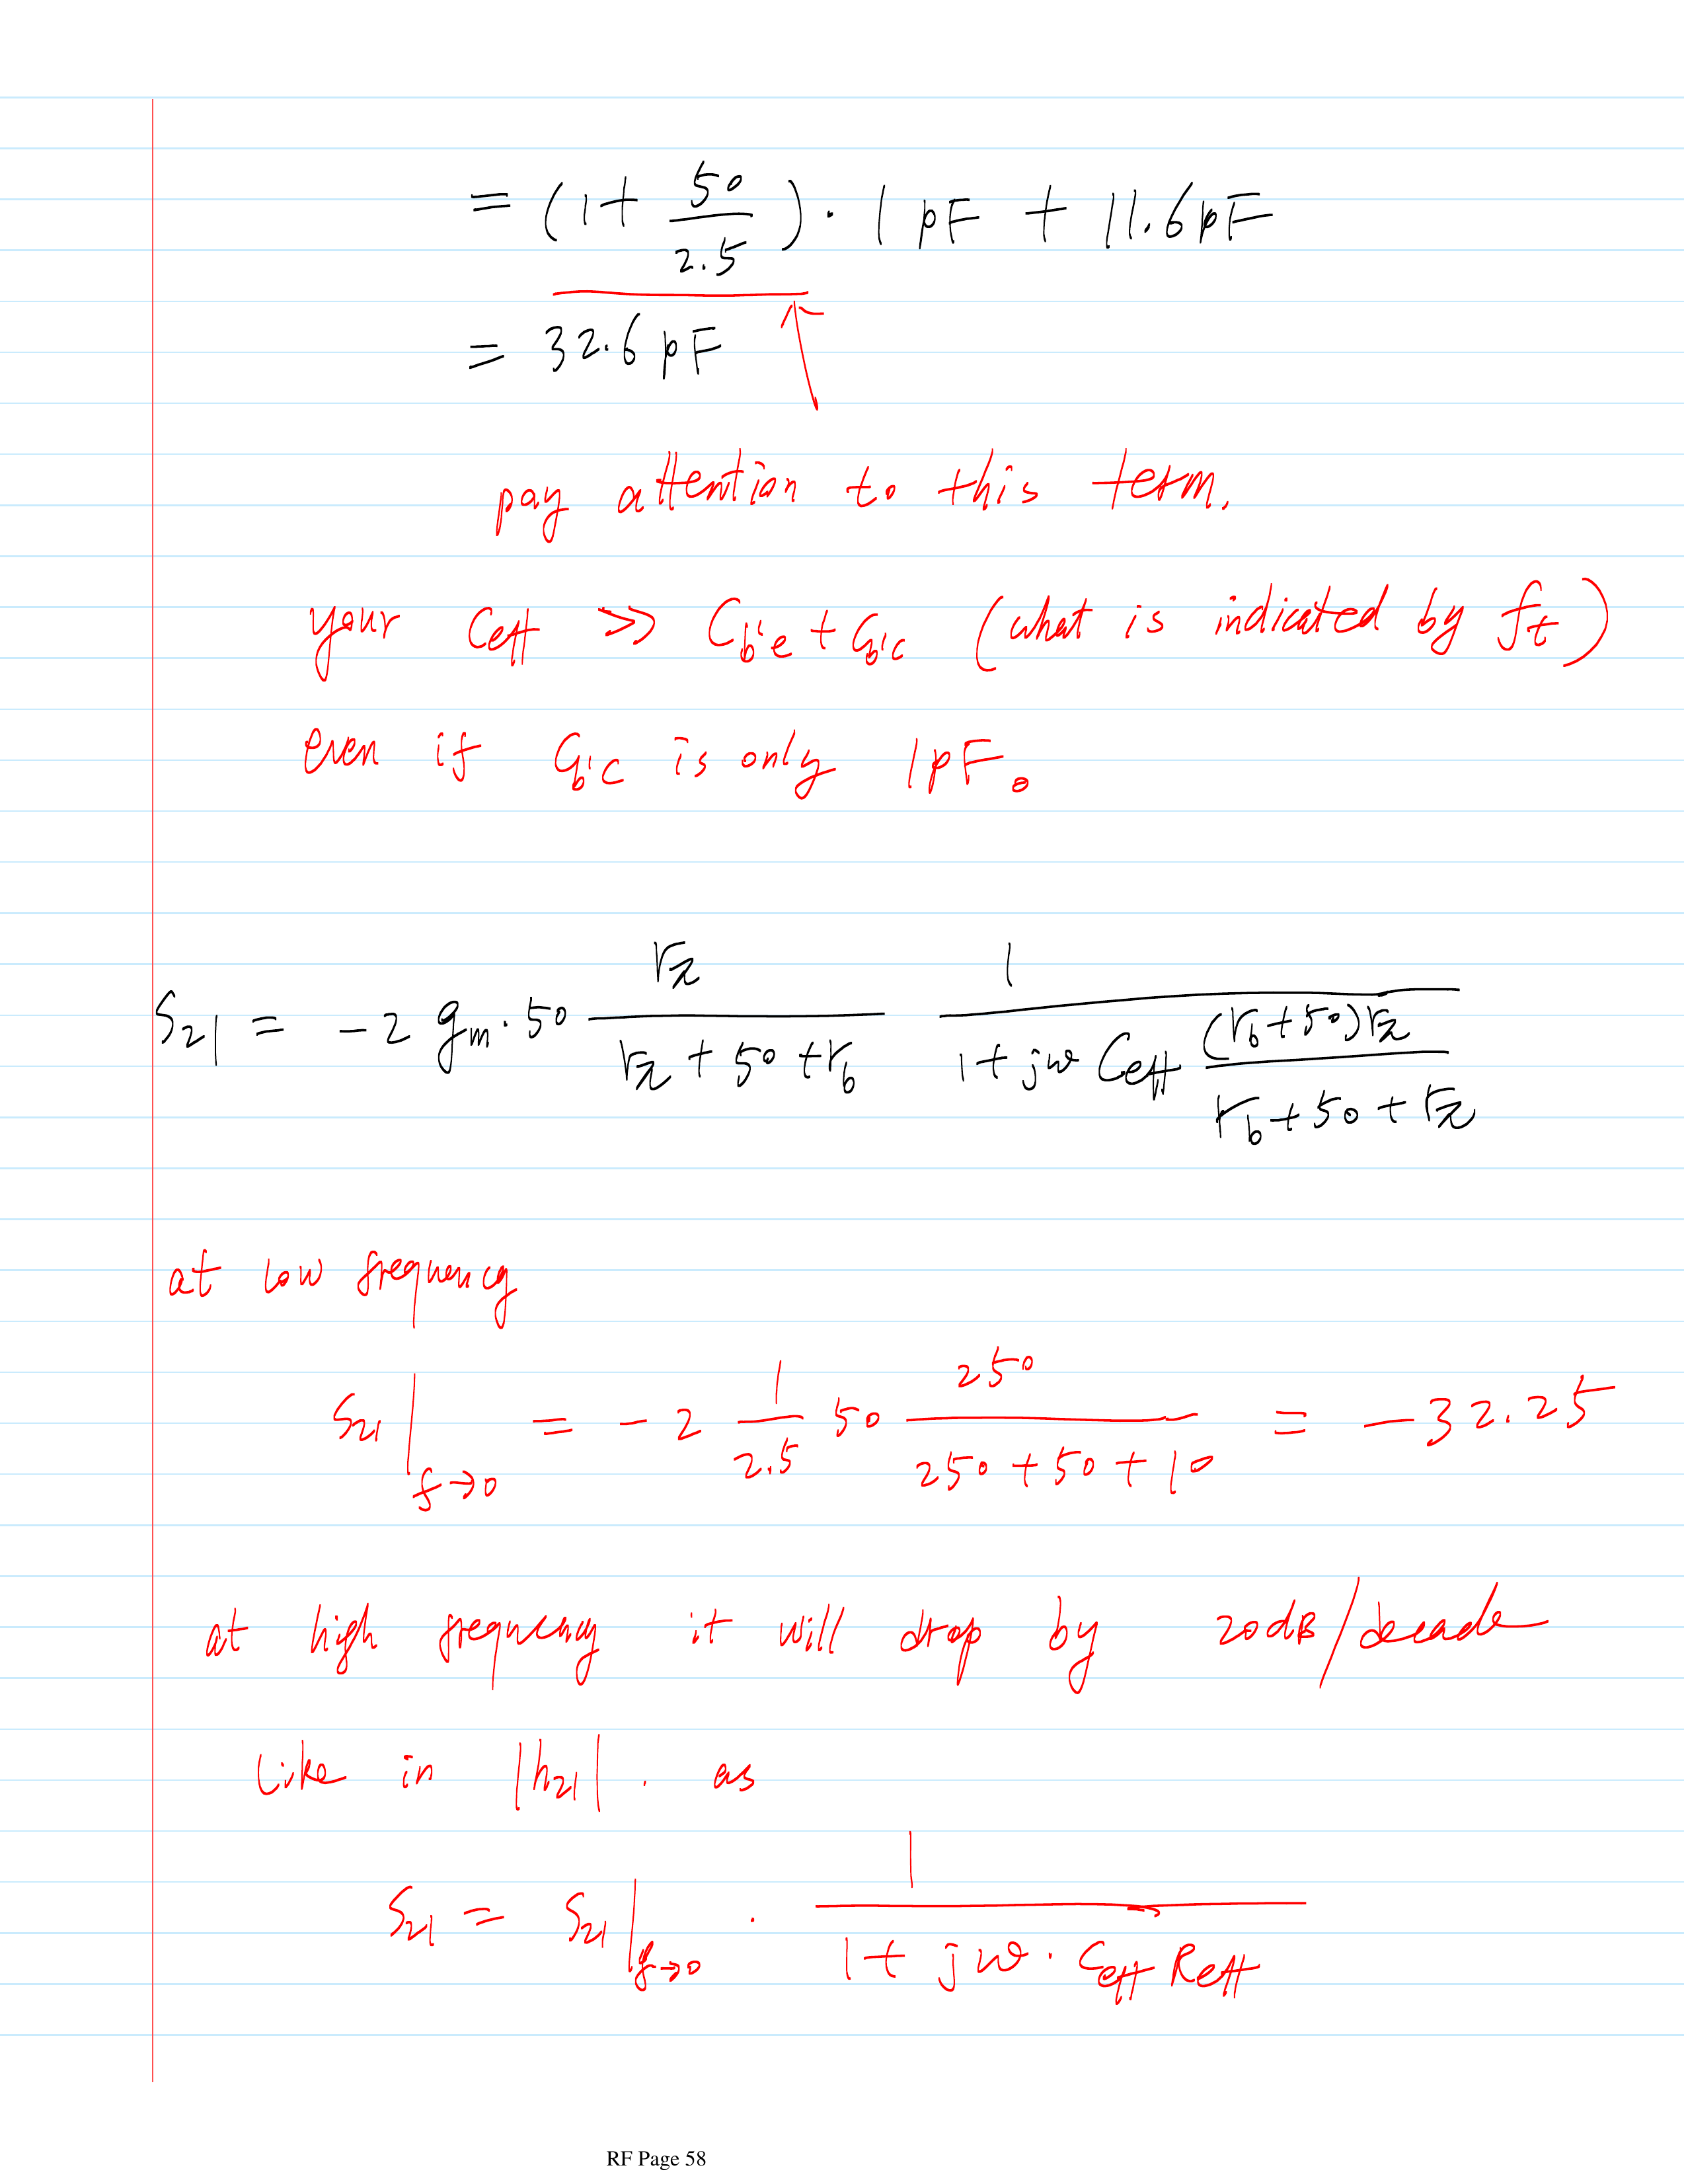 = (1 + 50/2.5) · 1 pF + 11.6 pF
= 32.6 pF
pay attention to this term.
your Ceff >> Cb'e + Cb'c (what is indicated by ft)
even if Cb'c is only 1 pF.
S21 = -2 gm · 50 rπ/(rπ + 50 + rb) 1/(1 + jω Ceff (rb + 50)rπ/(rb + 50 + rπ))
at low frequency
S21|f→0 = -2 1/2.5 50 250/(250 + 50 + 10) = -32.25
at high frequency it will drop by 20dB/decade
like in |h21|. as
S21 = S21|f→0 · 1/(1 + jω · Ceff Reff)
RF Page 58